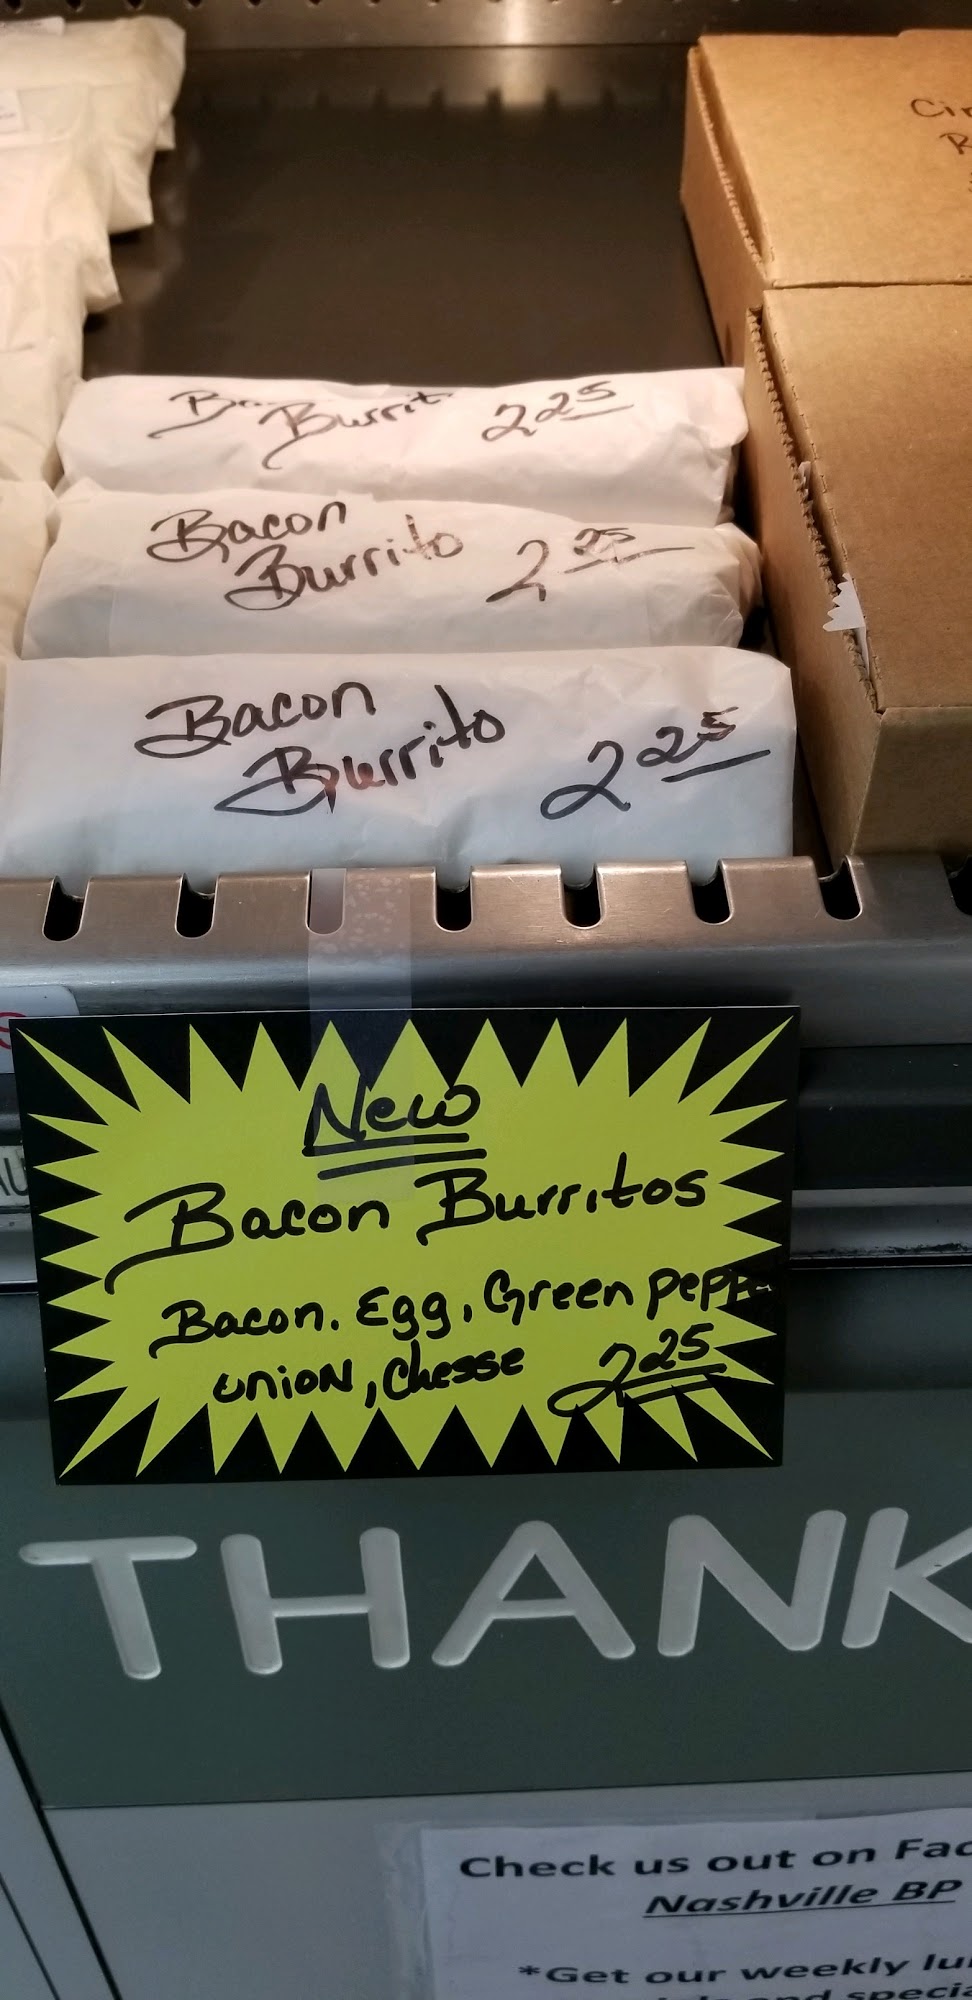 Burrit 2 25
Bacon
Burrito 2 25
Bacon
Burrito 2 25
New
Bacon Burritos
Bacon. Egg, Green pepp
Union, Chesse 2 25
THANK
Check us out on Fac
Nashville BP
*Get our weekly lu
and specia